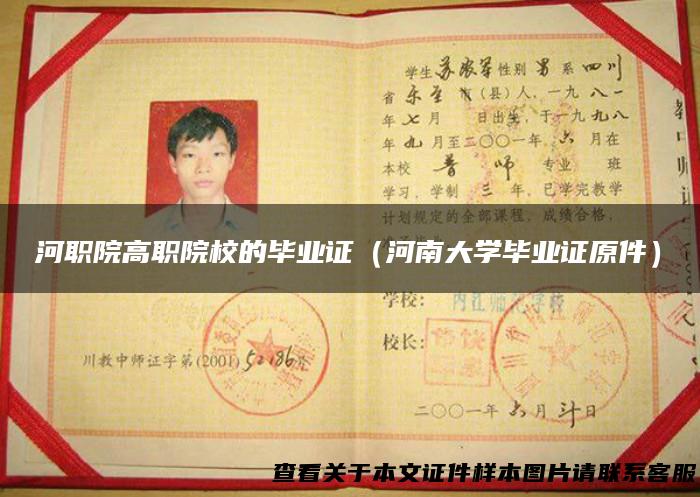 学生 苏 性别 男 系 四川
省 乐至 市(县)人,一九八一
年 七 月 日出生,于一九九八
年 九 月至二〇〇一年 六 月在
本校 普师 专业 班
学习,学制 三 年,已学完教学
计划规定的全部课程,成绩合格,
河职院高职院校的毕业证(河南大学毕业证原件)
学校: 内江师范学校
校长:
川教中师证字第(2001) 52186号
二〇〇一年 六 月 日
查看关于本文证件样本图片请联系客服